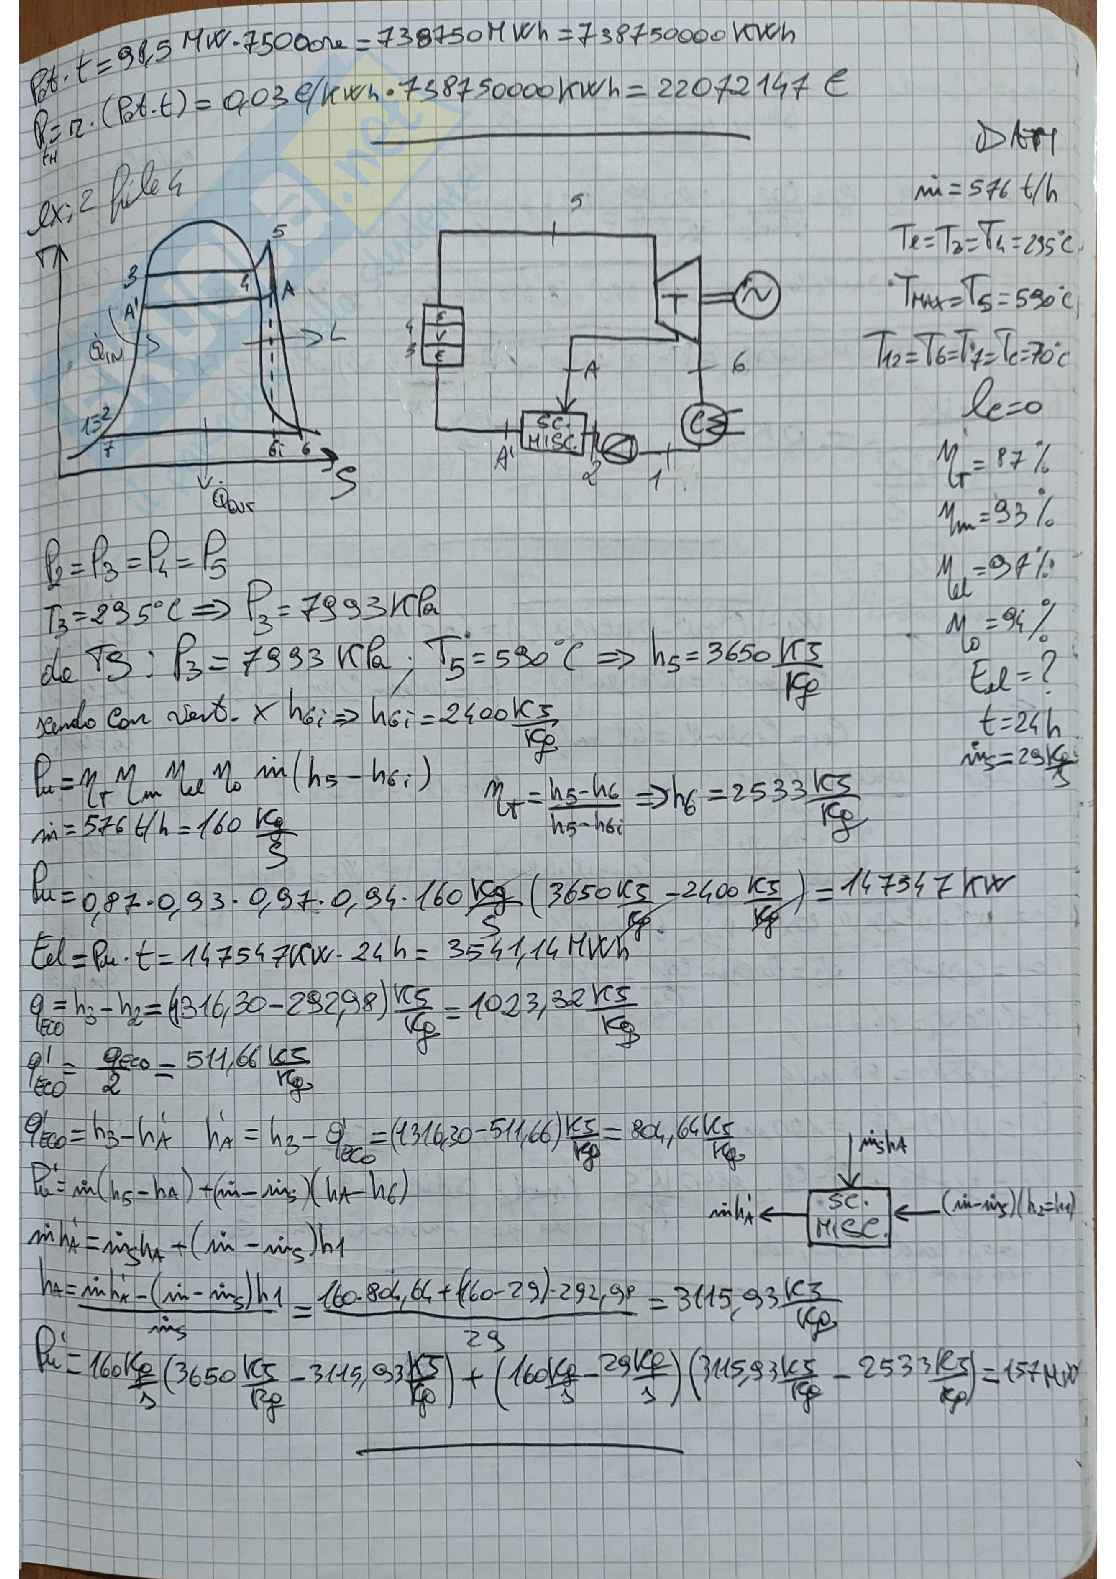 Pot.t = 98,5 MW·7500ore = 738750MWh = 738750000KWh
P_tH = r·(Pot.t) = 0,03 €/KWh·738750000KWh = 22072147 €
DATI
ex:2 file 4
ṁ = 576 t/h
Te=T3=T4=295°C
TMAX=T5=590°C
T12=T6=T7=Tc=70°C
lc=0
ηT = 87%
ηm = 93%
ηel = 97%
η0 = 94%
Eel = ?
t = 24h
ṁs = 29 Kg/s
T
5
3
4
A'
A
Q̇IN
L
1≡2
7
6i
6
S
Q̇OUT
5
T
~
E
V
E
4
3
A
6
SC.
MISC.
CS
A'
2
1
P2=P3=P4=P5
T3=295°C ⇒ P3=7993KPa
da TS: P3=7993 KPa; T5=590°C ⇒ h5=3650 KJ/Kg
scendo con vert. x h6i ⇒ h6i=2400 KJ/Kg
Pu = ηT ηm ηel η0 ṁ(h5-h6i)
ηT = h5-h6/h5-h6i ⇒ h6=2533 KJ/Kg
ṁ=576 t/h=160 Kg/s
Pu=0,87·0,93·0,97·0,94·160 Kg/s (3650 KJ/Kg - 2400 KJ/Kg) = 147547 KW
Eel=Pu·t=147547KW·24h= 3541,14 MWh
qECO=h3-h2=(1316,30-292,98) KJ/Kg=1023,32 KJ/Kg
q'ECO = qECO/2 = 511,66 KJ/Kg
q'ECO=h3-hA' hA'=h3-q'ECO=(1316,30-511,66) KJ/Kg=804,64 KJ/Kg
Pu'=ṁ(h5-hA)+(ṁ-ṁs)(hA-h6)
ṁshA
SC.
MISC.
ṁhA'
(ṁ-ṁs)(h2=h1)
ṁhA'=ṁshA+(ṁ-ṁs)h1
hA=ṁhA'-(ṁ-ṁs)h1/ṁs = 160·804,64+(160-29)·292,98/29 = 3115,93 KJ/Kg
Pu'=160 Kg/s (3650 KJ/Kg - 3115,93 KJ/Kg) + (160 Kg/s - 29 Kg/s) (3115,93 KJ/Kg - 2533 KJ/Kg) = 157MW